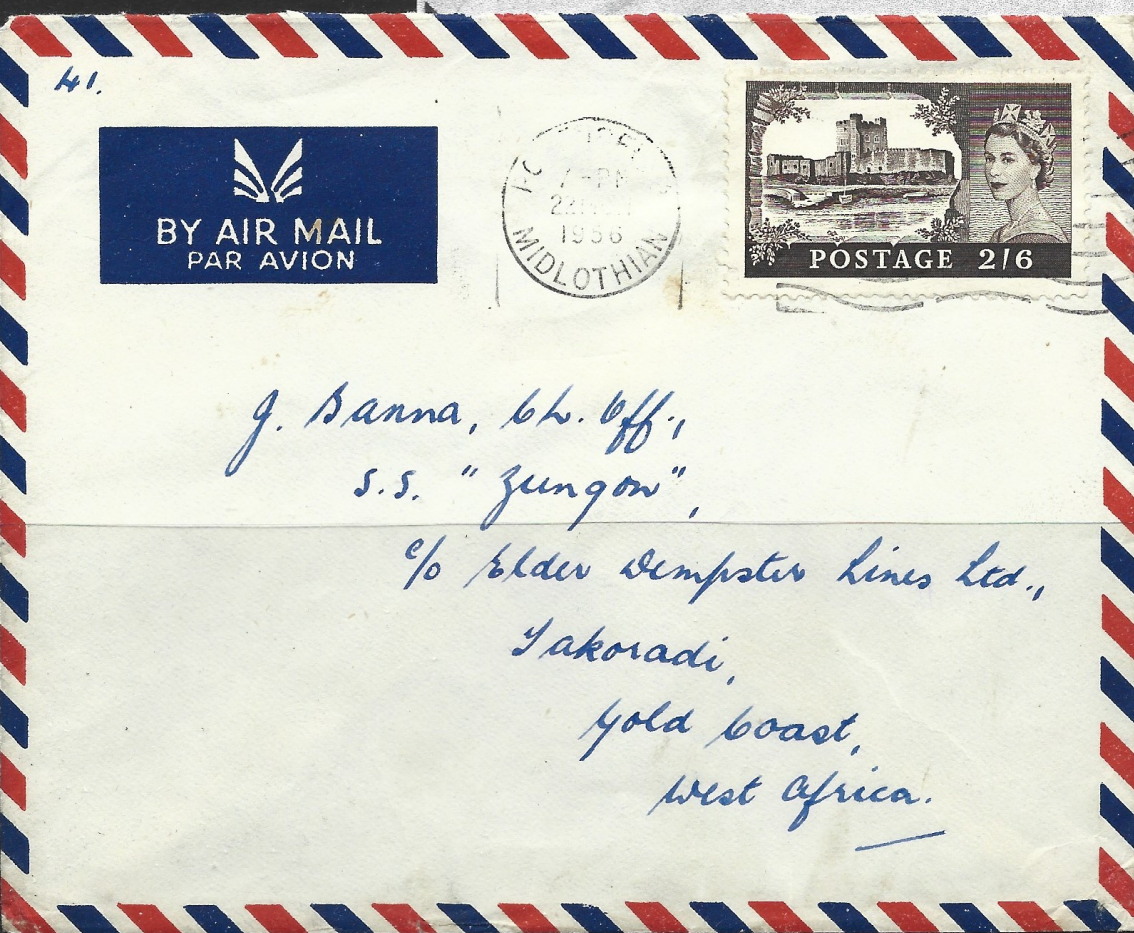 41.
BY AIR MAIL
PAR AVION
1956
MIDLOTHIAN
POSTAGE 2/6
J. Banna, Ch. Off.,
S.S. "Zungon",
c/o Elder Dempster Lines Ltd.,
Takoradi,
Gold Coast,
West Africa.